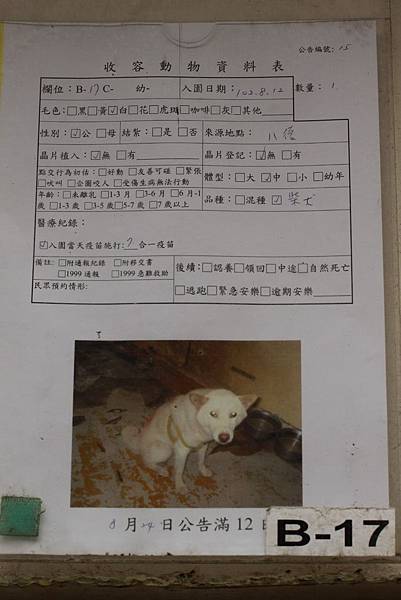 公告編號: 15
收容動物資料表
欄位:B-17 C- 幼-
入園日期: 102.8.12
數量: 1
毛色:□黑□黃☑白□花□虎斑□咖啡□灰□其他
性別:☑公□母
結紮:□是 □否
來源地點: 八德
晶片植入:☑無□有
晶片登記:☑無□有
點交行為初估:□好動 □友善可碰 □緊張
□吠叫 □企圖咬人 □受傷生病無法行動
體型:□大☑中□小□幼年
年齡:□未離乳 □1-3月 □3-6月 □6月-1
歲 □1-3歲 □3-5歲□5-7歲 □7歲以上
品種:□混種☑柴犬
醫療紀錄:
☑入園當天疫苗施打:7合一疫苗
備註:□附通報紀錄 □附移交書
□1999通報 □1999急難救助
後續:□認養□領回□中途□自然死亡
民眾預約情形:
□逃跑□緊急安樂□逾期安樂
8月24日公告滿12日
B-17